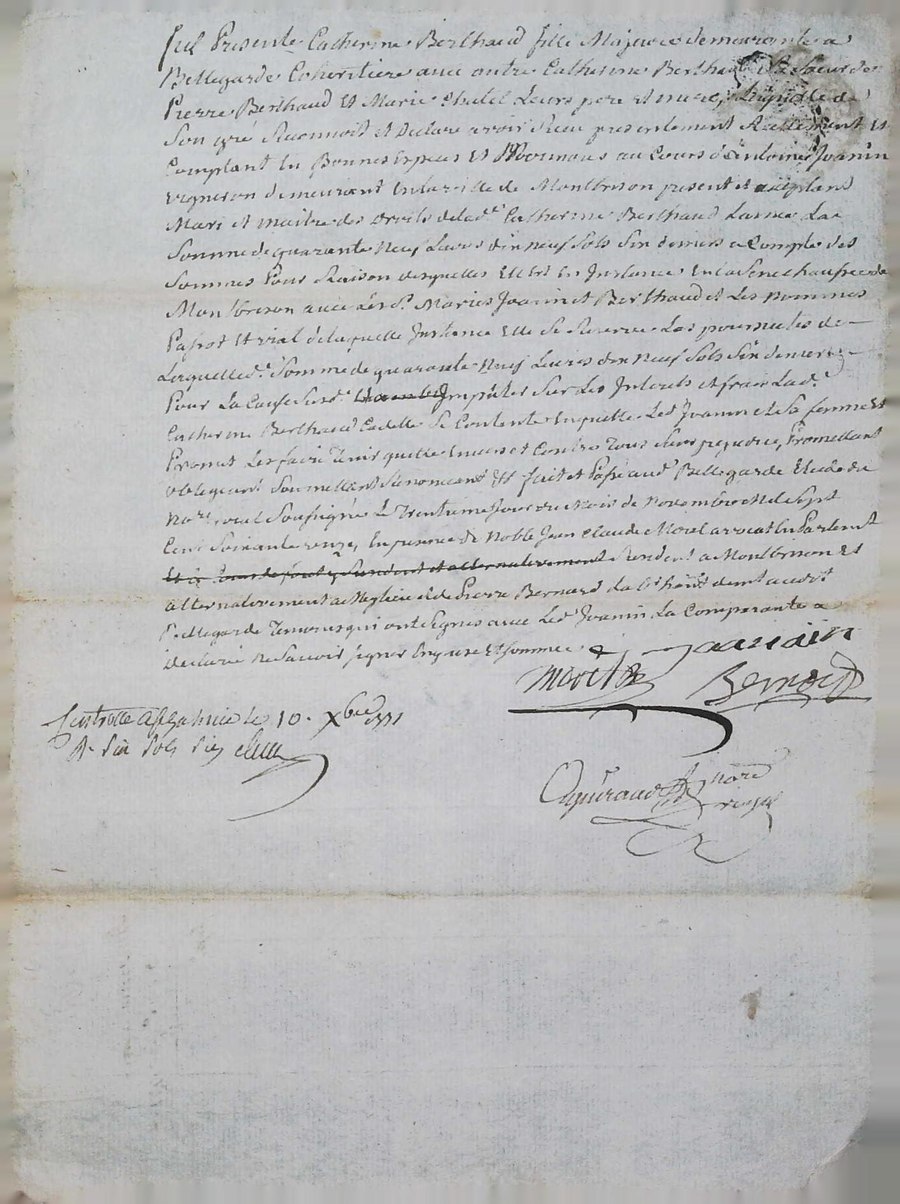 fut Presente Catherine Berthaud fille Majeure demeurante a
Bellegarde Coheritiere avec autre Catherine Berthaud Sa Soeur de
Pierre Berthaud Et Marie Chatel Leurs pere et mere, Laquelle de
Son gré Reconnoit Et declare avoir Receu presentement Reellement Et
Comptant En Bonnes Especes Et Monnoies au Cours d'Antoine Joanin
vigneron demeurant En la ville de Montbrison present et acceptant
Mari et maitre des droits de lad.e Catherine Berthaud Lainée La
Somme de quarante Neuf Livres dix neuf Sols Six deniers a Compte des
Sommes Pour Raison desquelles Elle Est En Instance En la Senechaussée de
Montbrison avec Les d. Mariés Joanin et Berthaud et Les nommés
Pafrot Et vial de laquelle Instance Elle Se Reserve Les poursuites de
Laquelle d. Somme de quarante Neuf Livres dix Neuf Sols Six deniers
Pour La Cause Susd. Imputer Sur Les Interets et frais La d.
Catherine Berthaud Cadette Se Contente En quitte Led. Joanin et Sa femme Et
Promet Les faire Tenir quitte Envers et Contre Tous a Leur prejudice, Promettant
obligeant Soumettant Renonceant Et fait et Passé aud. Bellegarde Etude du
No.re royal Soussigné Le Trentieme Jour du Mois de Novembre Mil Sept
Cent Soixante onze, En presence de Noble Jean Claude Morel avocat En Parlement
Resident a Montbrison Et
alternativement a et de Pierre Bernard demt aud.
Bellegarde Temoins qui ont Signés avec Led. Joanin, La Comparante a
declaré Ne Savoir Signer Enquise Et Sommée
Joannin
Morel Bernard
Controllé a St Galmier le 10. Xbre 1771
R. Six Sols Six
nore
royal